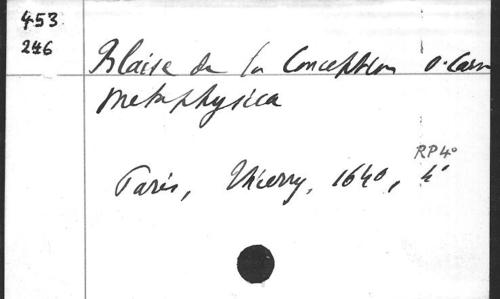 453
246
Blaise de la Conception o. Carm
Metaphysica
RP 4°
Paris, Thierry, 1640, 4°